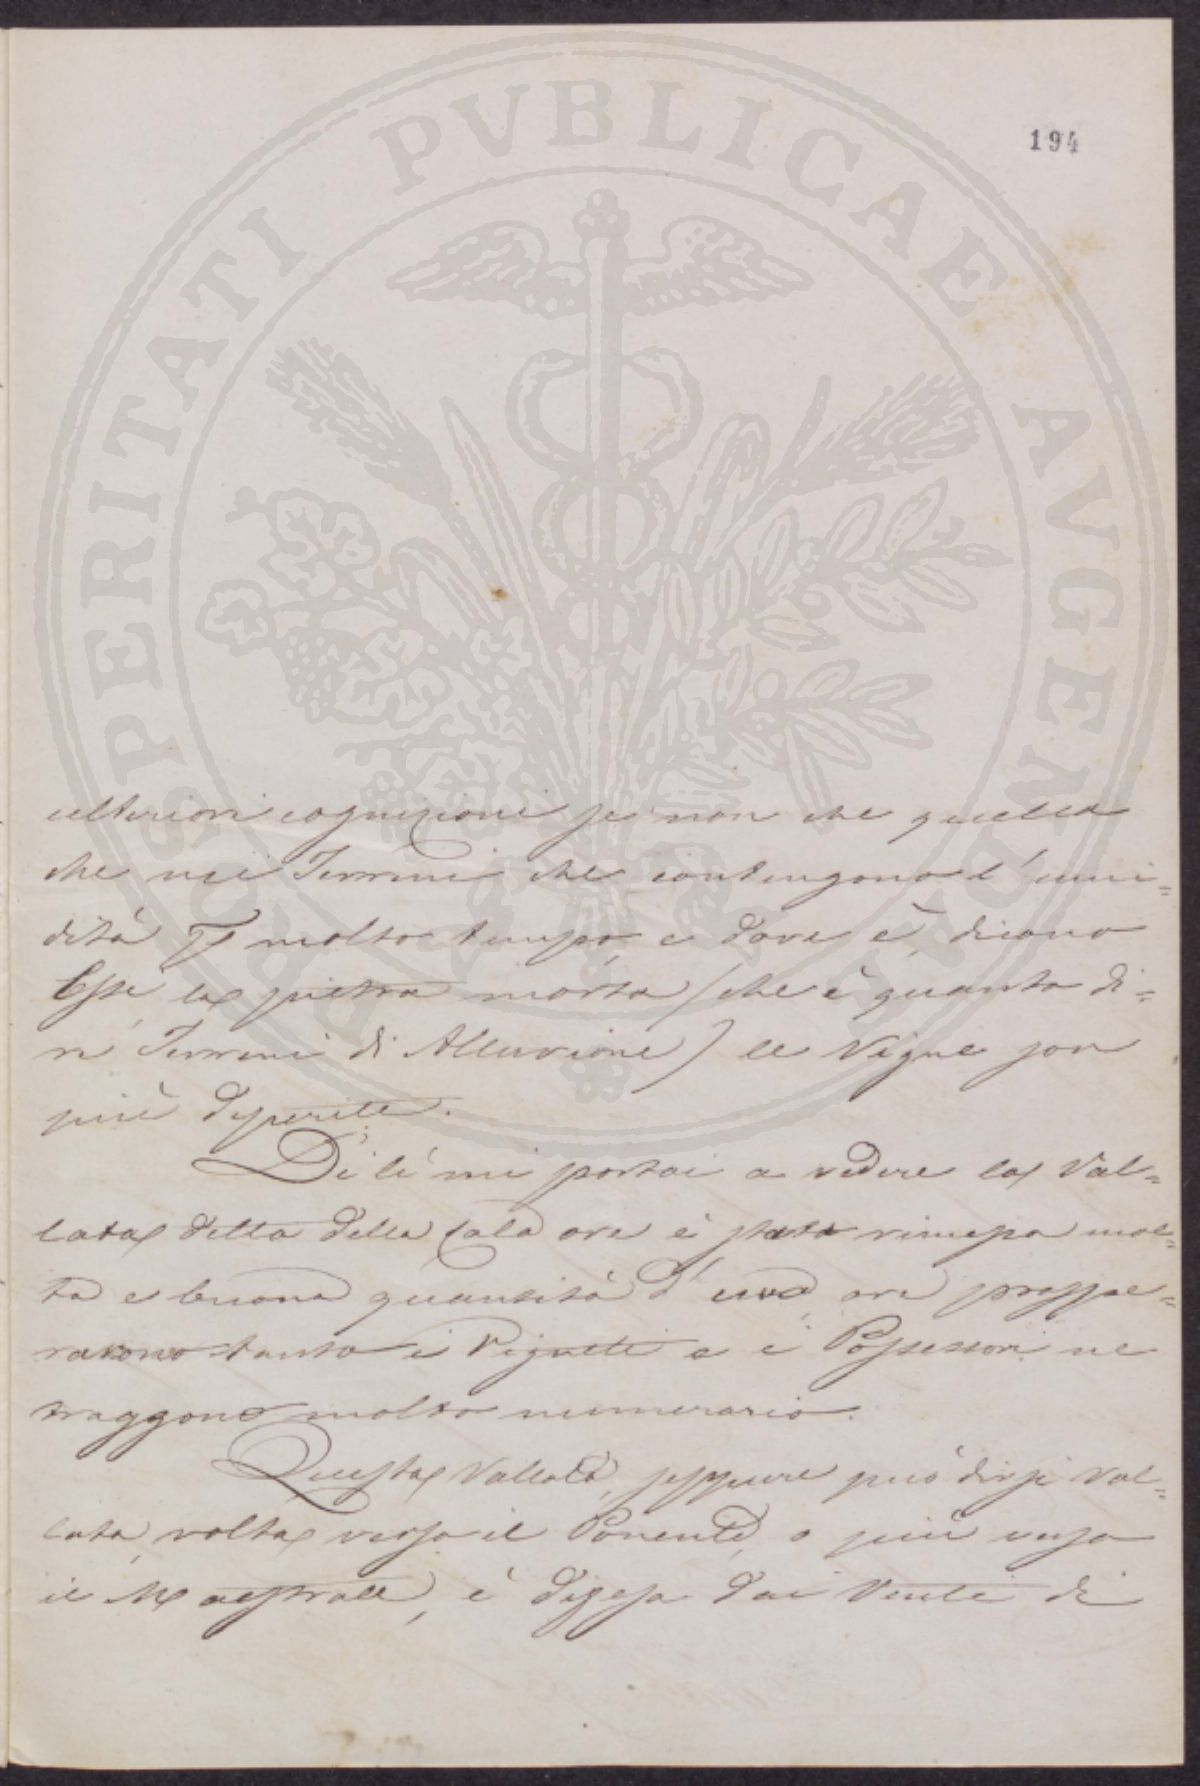 PROSPERITATI PVBLICAE AVGENDAE
194
ulteriori cognizioni se non che quella
che nei Terreni che contengono l'umi=
dità p molto tempo, e dove è, dicono
Essi, la pietra morta (che è quanto di=
re Terreni di Alluvione) le Vigne son
più deperite.
Di lì mi portai a vedere la Val=
lata detta della Cala ove è stata rimessa mol=
ta e buona quantità d'uva, ove prospe=
ravono tanto i Vigneti e i Possessori ne
traggono molto numerario.
Questa Vallata, seppure può dirsi Val=
lata, volta verso il Ponente, o più verso
il Maestrale, è difesa dai Venti di